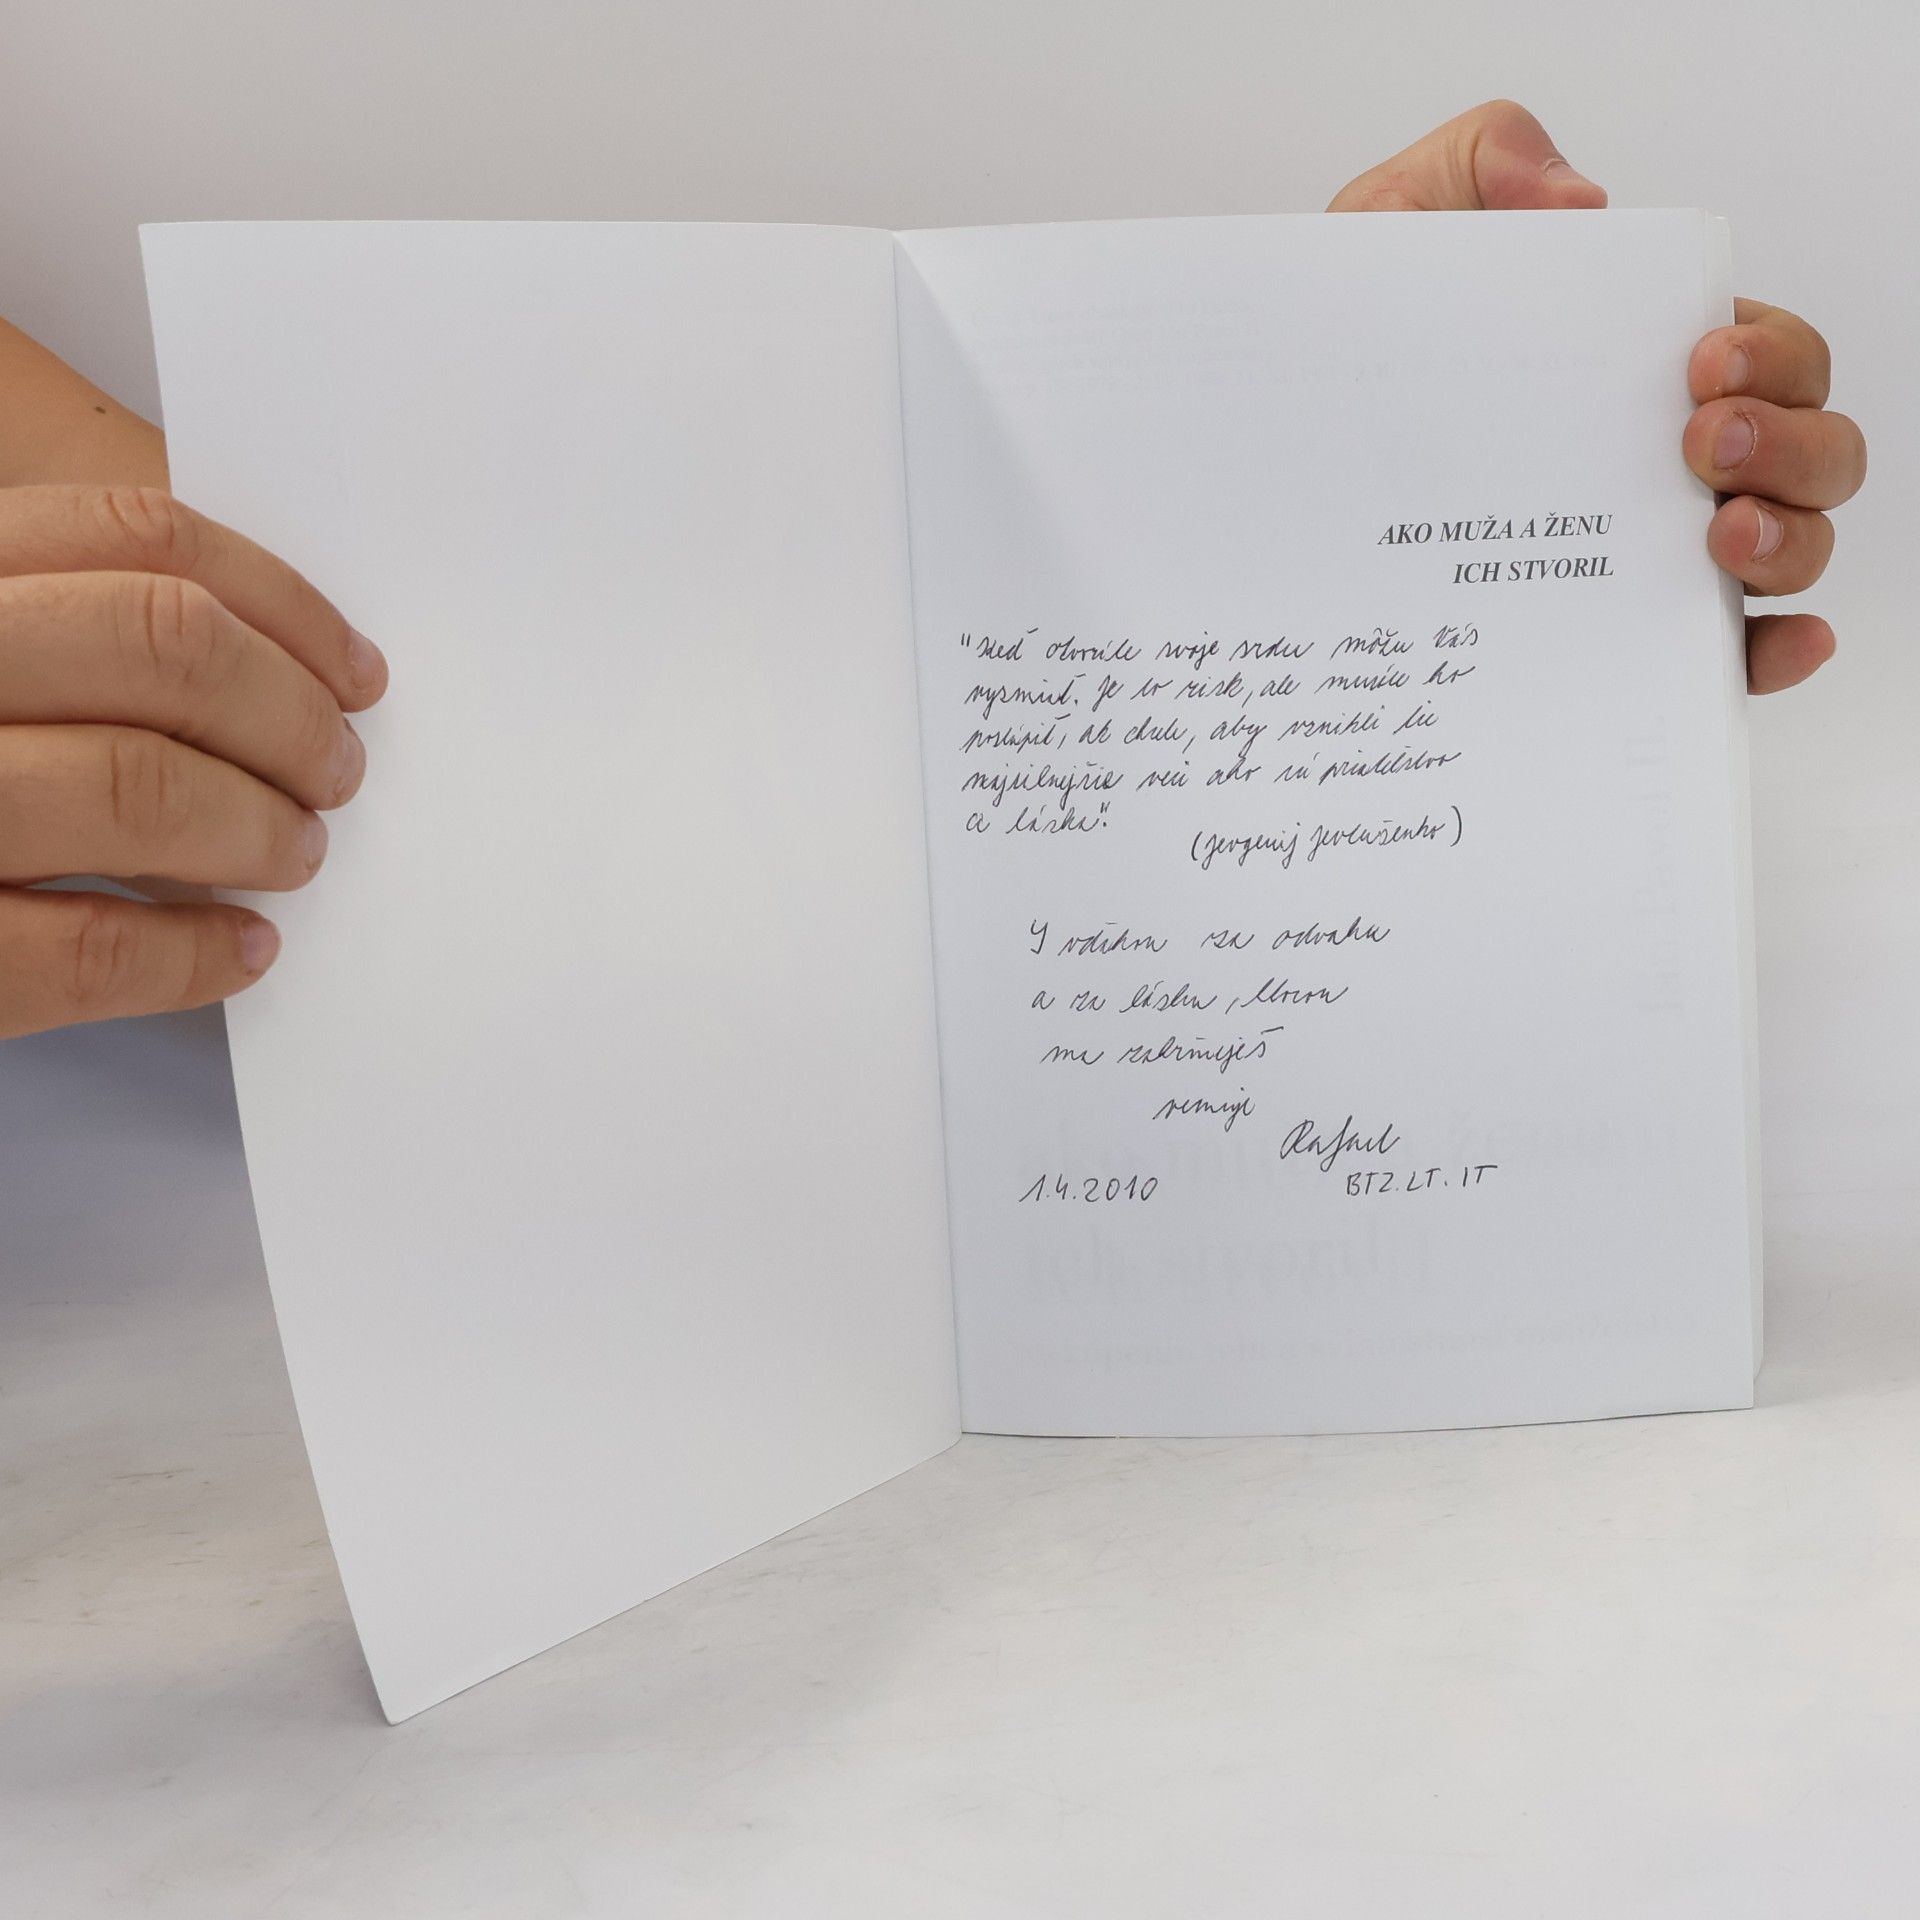 AKO MUŽA A ŽENU
ICH STVORIL
"Keď otvoríte svoje srdce môžu Vás
vysmiať. Je to risk, ale musíte ho
postúpiť, ak chcete, aby vznikli tie
najsilnejšie veci ako sú priateľstvo
a láska".
(Jevgenij Jevtušenko)
S vďakou za odvahu
a za lásku, ktorou
ma zahrňuješ
Rafael
1.4.2010
BTZ.LT.IT